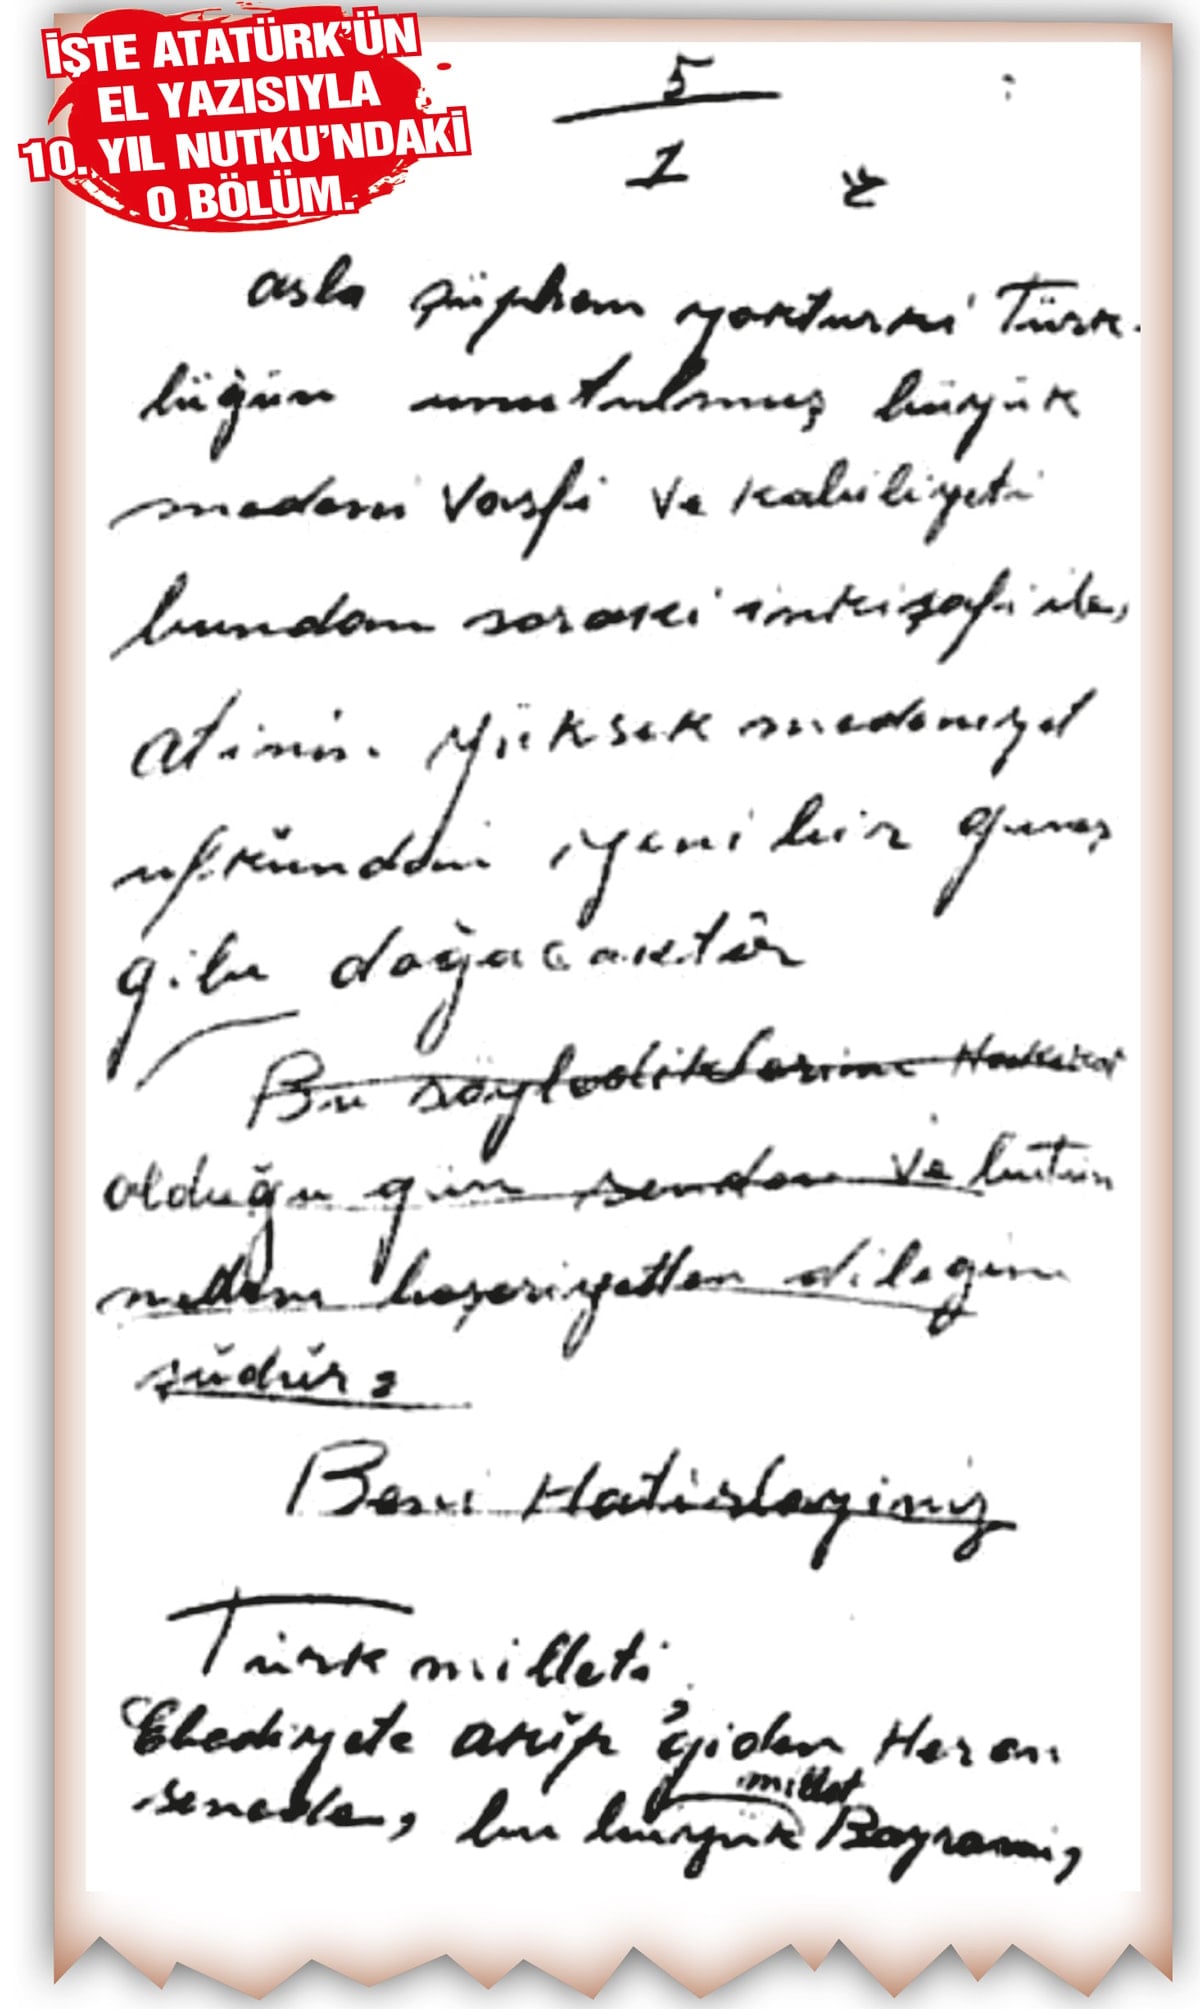 İŞTE ATATÜRK'ÜN
EL YAZISIYLA
10. YIL NUTKU'NDAKİ
O BÖLÜM.
5
1
asla şüphem yokturki Türk-
lüğün unutulmuş büyük
medeni vasfi ve kabiliyeti
bundan soraki inkişafi ile,
atinin yüksek medeniyet
ufkundan yeni bir güneş
gibi doğacaktır
Bu söylediklerim Hakikat
olduğu gün senden ve bütün
medeni beşeriyetten dileğim
şudur:
Beni Hatirlayiniz
Türk milleti
Ebediyete akıp giden Her on
millet
senede, bu büyük Bayrami,